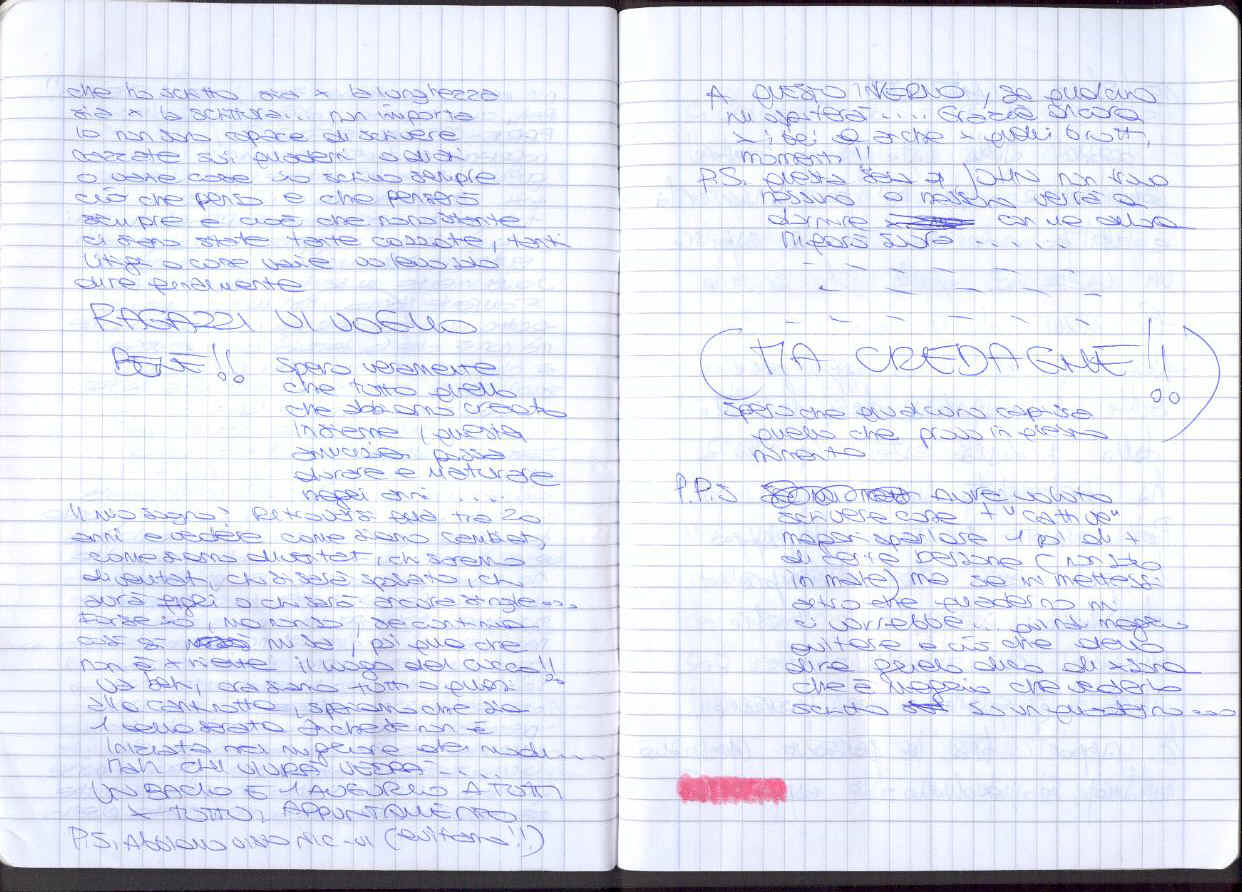 che ho scritto sia x la lunghezza
sia x la scrittura... non importa
Io non sono capace di scrivere
cazzate sui quaderni o diari
o varie cose io scrivo sempre
ciò che penso e che penserò
sempre e cioè che nonostante
ci siano state tante cazzate, tanti
litigi o come vasie volevo solo
dire finalmente
RAGAZZI VI VOGLIO
BENE!! Spero veramente
che tutto quello
che abbiamo creato
insieme, questa
amicizia possa
durare e maturare
negli anni ....
Il mio sogno? Ritrovarsi qua tra 20
anni e vedere come siamo cambiati,
come siamo diventati, chi saremo
diventati, chi si sarà sposato, chi
avrà figli o chi sarà ancora single...
Forse io, no non lo, se continuo
così si, poi qua che
non è x niente il luogo del cucco!!
Va beh, ora siamo tutti o quasi
alla , speriamo che sia
1 bella serata anche se non è
iniziata nei migliore dei modi.....
mah chi vivrà vedrà.....
UN BACIO E 1 AUGURIO A TUTTI
X TUTTO, APPUNTAMENTO
P.S. Abbiamo visto (evitiamo!!)
A QUESTO INVERNO, se qualcuno
mi ospiterà .... Grazie ancora
x i bei e anche x quelli brutti,
momenti!!
P.S. questa sera x non trovo
nessuno o nessuno verrà a
dormire con me allora
mi farò suora ......
(MA CREDAGNE!!)
Spero che qualcuno capisca
quello che provo in questo
momento
P.P.S avrei voluto
scrivere cose + "cattive"
magari sparlare 1 po' di +
di certe persone (non solo
in male) ma se mi mettessi
altro che quaderno mi
ci vorrebbe... quindi meglio
evitare e ciò che devo
dire glielo dico di xsona
che è meglio che vederlo
scritto su un quaderno...